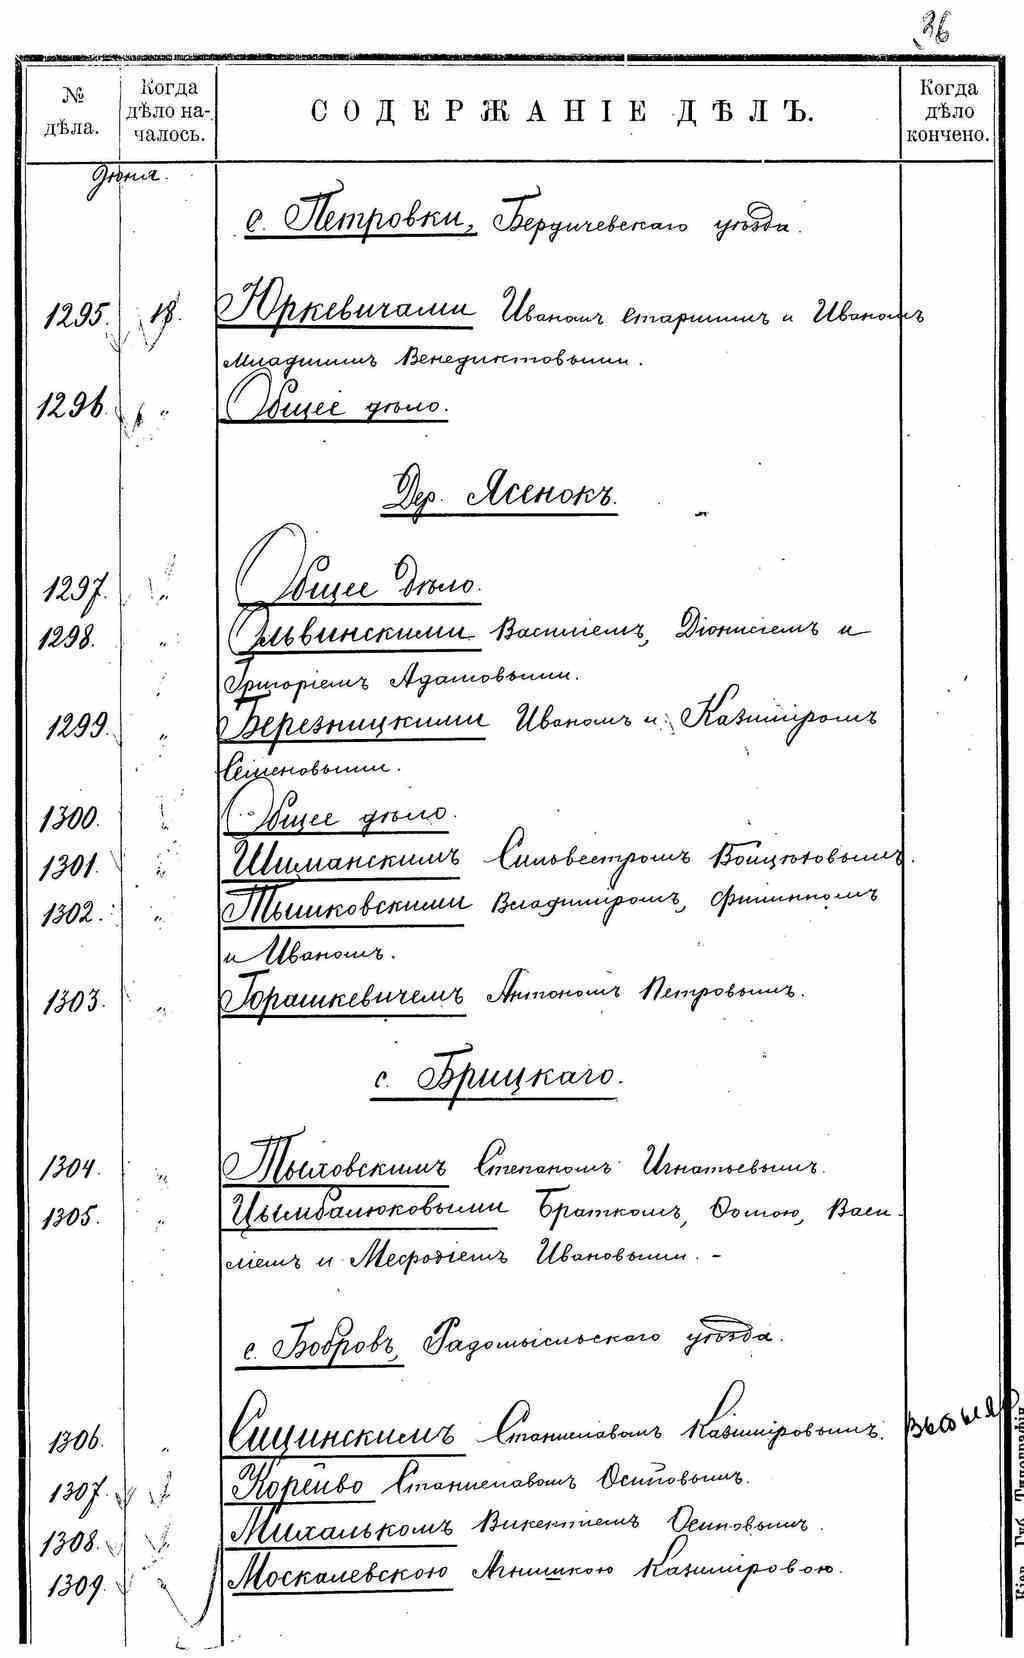 36
№ дѣла. Когда дѣло началось. СОДЕРЖАНІЕ ДѢЛЪ. Когда дѣло кончено.
Июня.
с. Петровки, Бердичевскаго уѣзда.
1295. 18. Юркевичами Иваномъ Старшимъ и Иваномъ
Младшимъ Венедиктовыми.
1296. „ Общее дѣло.
Дер. Ясенокъ.
1297. „ Общее Дѣло.
1298. „ Ольвинскими Василіемъ, Діонисіемъ и
Григоріемъ Адамовыми.
1299. „ Березницкими Иваномъ и Казиміромъ
Семеновыми.
1300. „ Общее дѣло.
1301. „ Шиманскимъ Сильвестромъ Войцеховымъ.
1302. „ Тышковскими Владиміромъ, Филиппомъ
и Иваномъ.
1303. „ Горашкевичемъ Антономъ Петровымъ.
с. Брицкаго.
1304. „ Тыховскимъ Степаномъ Игнатьевымъ.
1305. „ Цымбалюковыми Браткомъ, Ѳомою, Васи-
ліемъ и Меѳодіемъ Ивановыми. -
с. Бобровъ, Радомысльскаго уѣзда.
1306. „ Сицинскимъ Станиславомъ Казиміровымъ. Выбыла
1307. „ Корейво Станиславомъ Осиповымъ.
1308. „ Михалькомъ Викентіемъ Осиповымъ.
1309. „ Москалевскою Агнишкою Казиміровою.
Кіев. Губ. Типографія